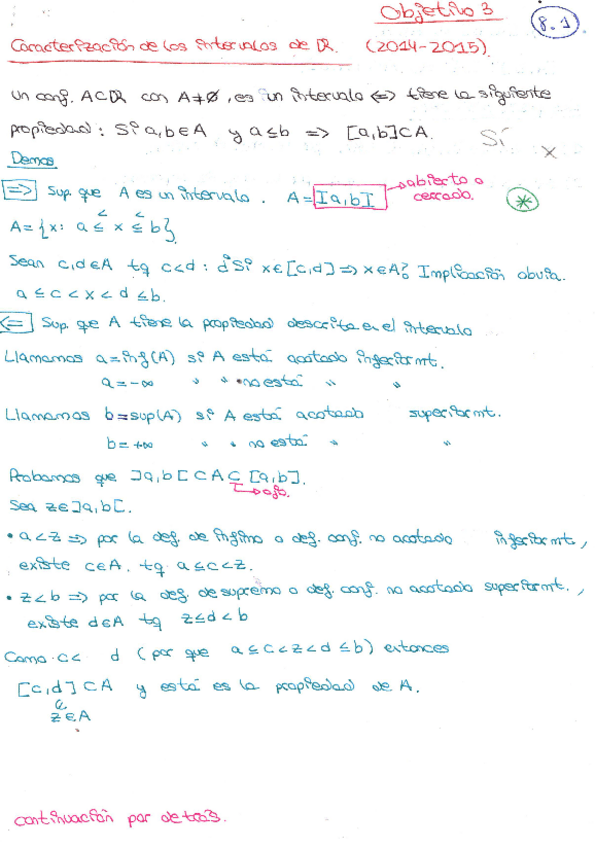 Objetivo 3
8.1
Caracterización de los intervalos de ℝ. (2014-2015)
Un conj. A⊂ℝ con A≠∅, es un intervalo <=> tiene la siguiente
propiedad: Si a,b∈A y a≤b => [a,b]⊂A. Sí x
Demos
=> Sup. que A es un intervalo. A=I a,b I → abierto o cerrado. *
A={x: a ≤ x ≤ b}
< <
Sean c,d∈A tq c<d: ¿Si x∈[c,d] => x∈A? Implicación obvia.
a ≤ c < x < d ≤ b.
<= Sup. que A tiene la propiedad descrita en el intervalo
Llamamos a=inf(A) si A está acotado inferiormt.
a=-∞ " " no está " "
Llamamos b=sup(A) si A está acotado superiormt.
b=+∞ " " no está " "
Probamos que ]a,b[ ⊂ A ⊆ [a,b].
→ojo.
Sea z∈]a,b[.
• a<z => por la def. de ínfimo o def. conj. no acotado inferiormt,
existe c∈A. tq a≤c<z.
• z<b => por la def. de supremo o def. conj. no acotado superiormt.,
existe d∈A tq z≤d<b
Como c< d (por que a≤c<z<d≤b) entonces
[c,d]⊂A y está es la propiedad de A.
z∈A
continuación por detrás.